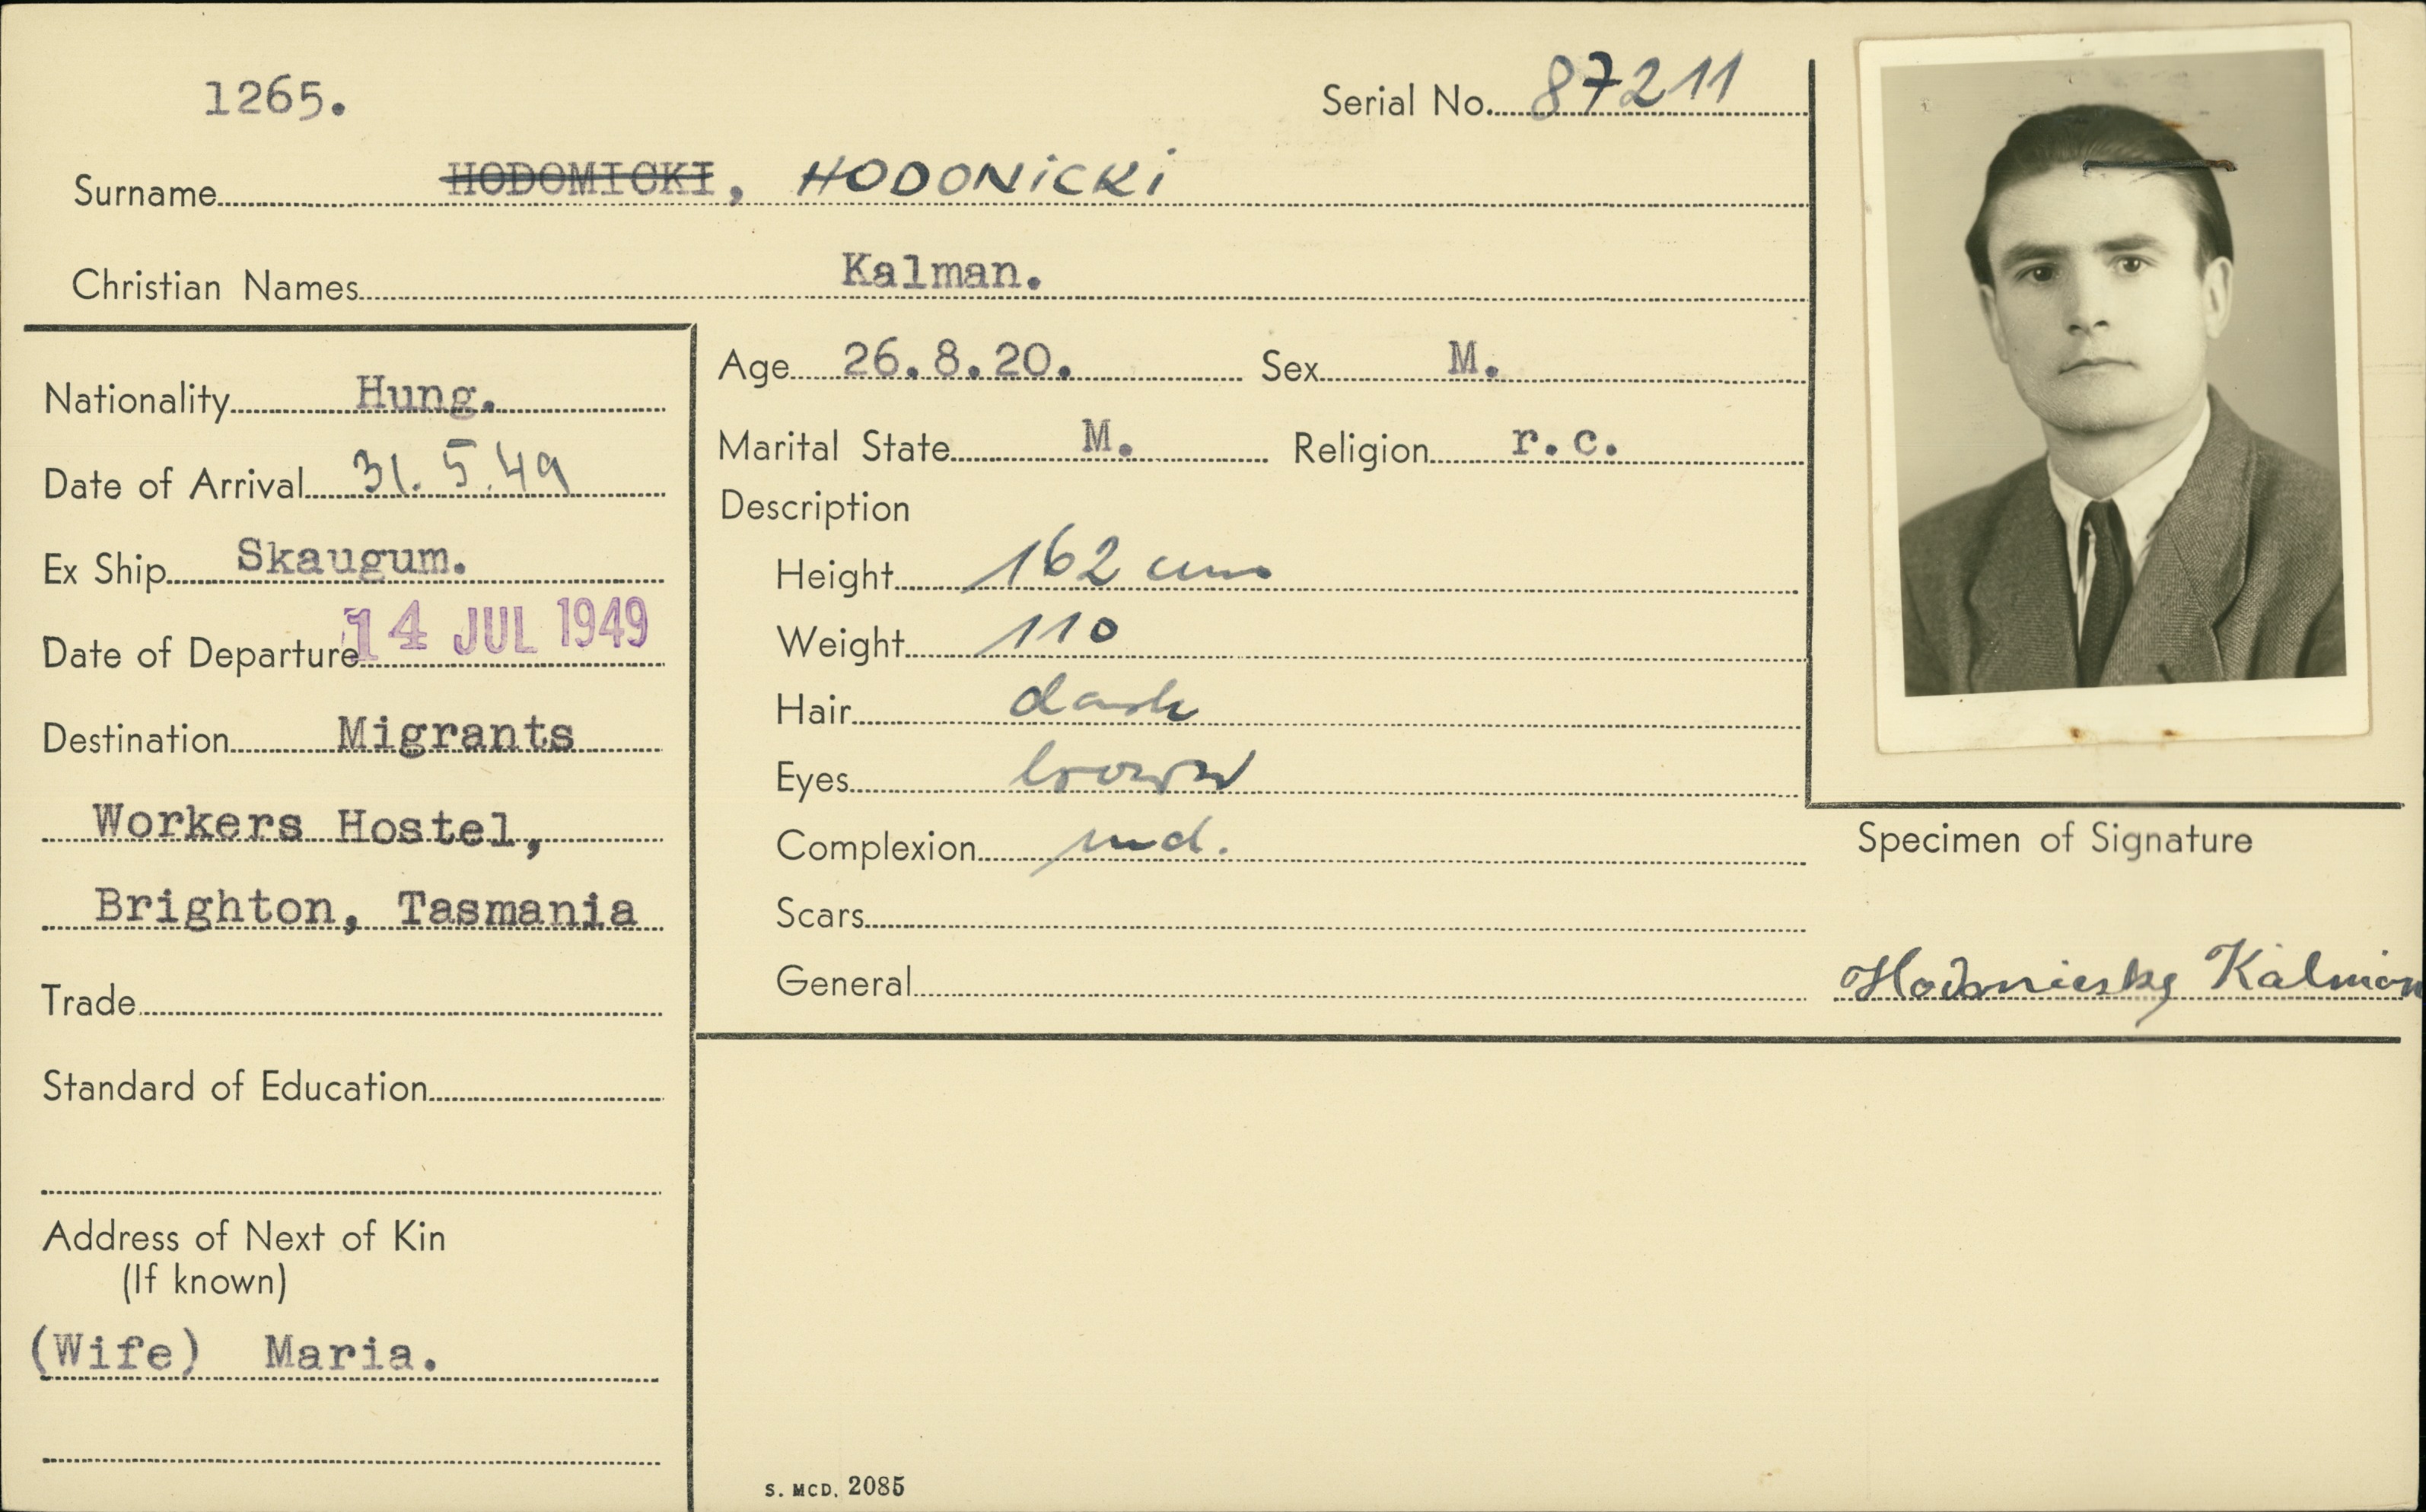 1265.
Serial No. 87211
Surname HODOMICKI, HODONiCKi
Christian Names Kalman.
Nationality Hung.
Date of Arrival 31.5.49
Ex Ship Skaugum.
Date of Departure 14 JUL 1949
Destination Migrants
Workers Hostel,
Brighton, Tasmania
Trade
Standard of Education
Address of Next of Kin
(If known)
(Wife) Maria.
Age 26.8.20. Sex M.
Marital State M. Religion r.c.
Description
Height 162 cm
Weight 110
Hair dark
Eyes brown
Complexion md.
Scars
General
Specimen of Signature
Kálmán
S. MCD. 2085